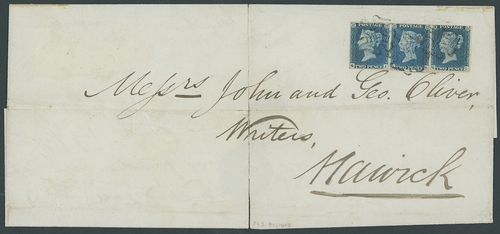 POSTAGE POSTAGE POSTAGE
TWO PENCE TWO PENCE TWO PENCE
Messrs John and Geo. Oliver,
Writers,
Hawick